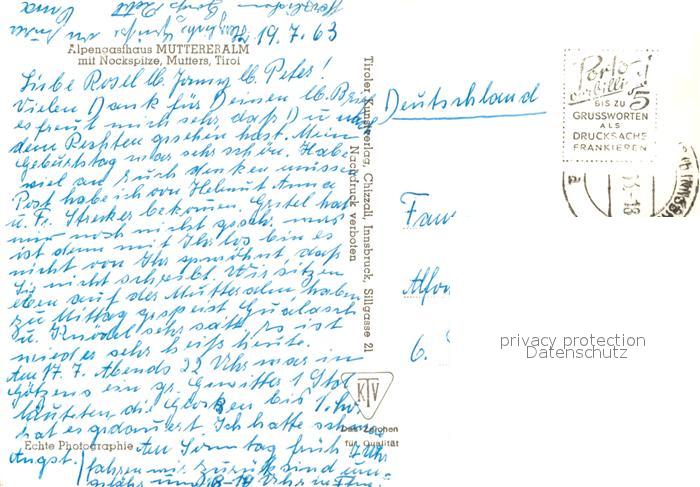 19.7.63
Alpengasthaus MUTTERERALM
mit Nockspitze, Mutters, Tirol
Liebe Rosel lb. lb. Peter!
Vielen Dank für Deinen lb. Brief
es freut mich sehr daß Du
dem Rechten gesehen hast. Mein
Geburtstag war sehr schön. Habe
viel an Euch denken müssen
Post habe ich von Helmut Anna
u. Fr. Strecker bekommen. Gretel hat
mir noch nicht geschr. was
ist denn mit Ihr los bin es
nicht von Ihr gewöhnt, daß
Sie nicht schreibt. Wir sitzen
eben auf der Mutteralm, haben
zu Mittag gespeist Gulasch
u. Knödel sehr satt, es ist
wieder sehr heiß heute.
Am 17.7. Abends 22 Uhr war in
Götzens ein gr. Gewitter 1 Std
läuteten die Glocken bis 1 Uhr
hat es gedauert. Ich hatte
Echte Photographie
Am Sonntag früh 7 Uhr
Angst.
fahren wir zurück sind
Uhr in
Tiroler Kunstverlag Chizzali, Innsbruck, Sillgasse 21
Nachdruck verboten
KTV
Das Zeichen
für Qualität
Deutschland
Porto
verbilligt
5
BIS ZU
GRUSSWORTEN
ALS
DRUCKSACHE
FRANKIEREN
-18
a
6.
privacy protection
Datenschutz